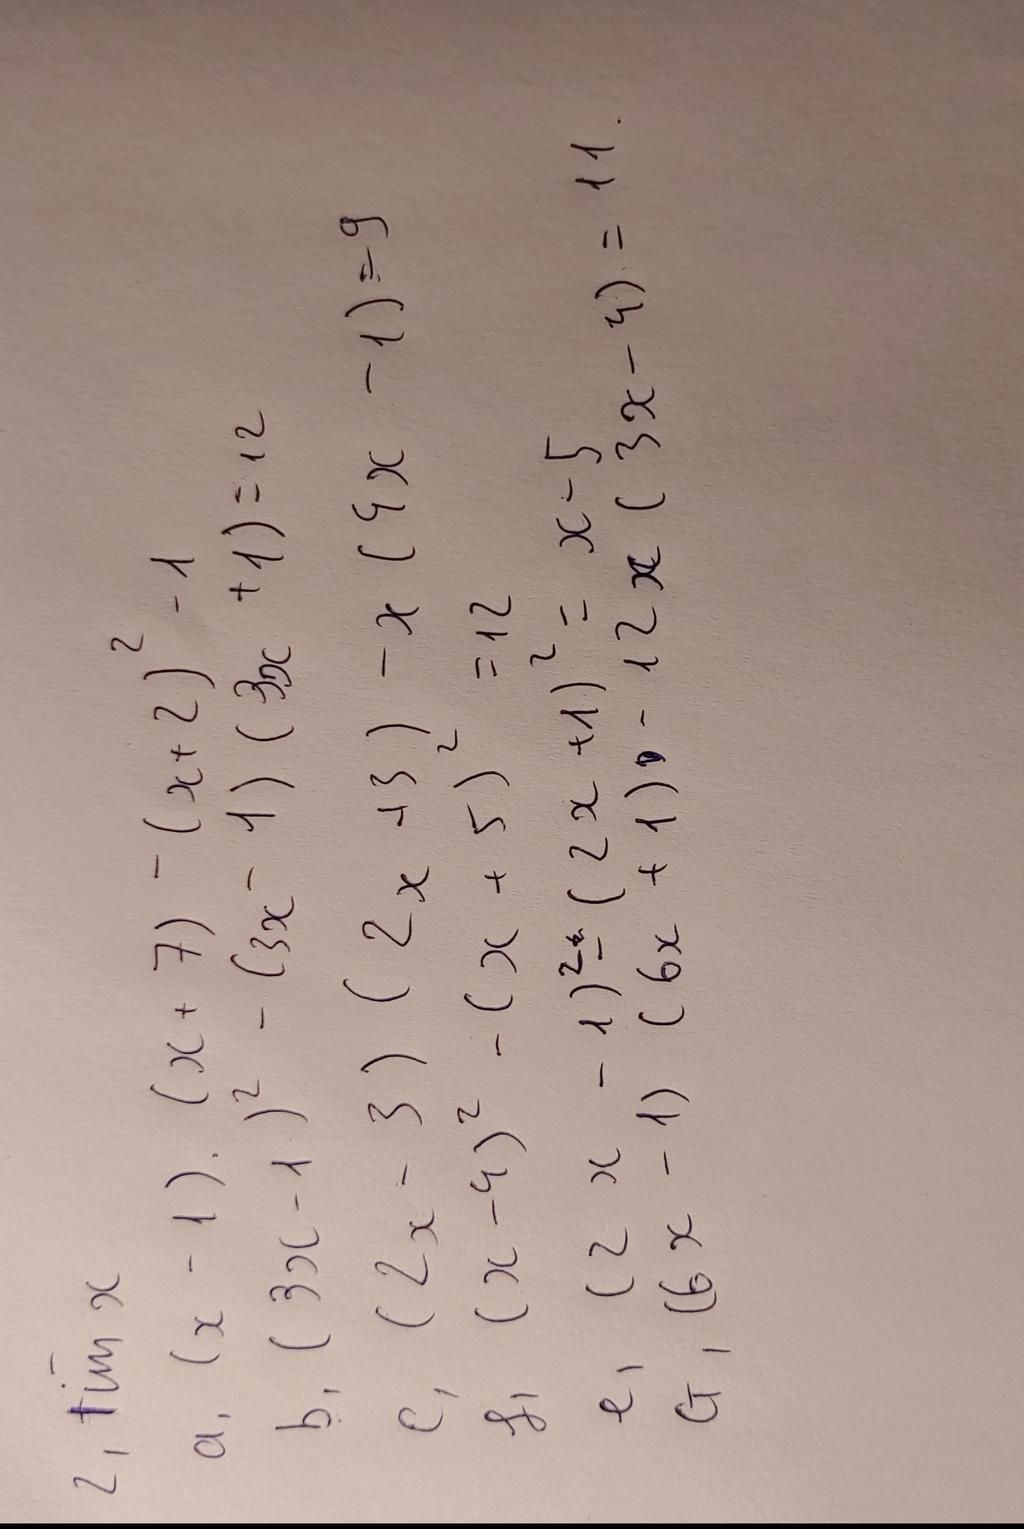 2, tìm x
a, (x - 1). (x + 7) - (x+2)² - 1
b, (3x - 1)² - (3x - 1) (3x + 1) = 12
c, (2x - 3) (2x + 3) - x (4x - 1) = 9
f, (x - 4)² - (x + 5)² = 12
e, (2x - 1)² - (2x + 1)² = x - 5
G, (6x - 1) (6x + 1) - 12x (3x - 4) = 11.